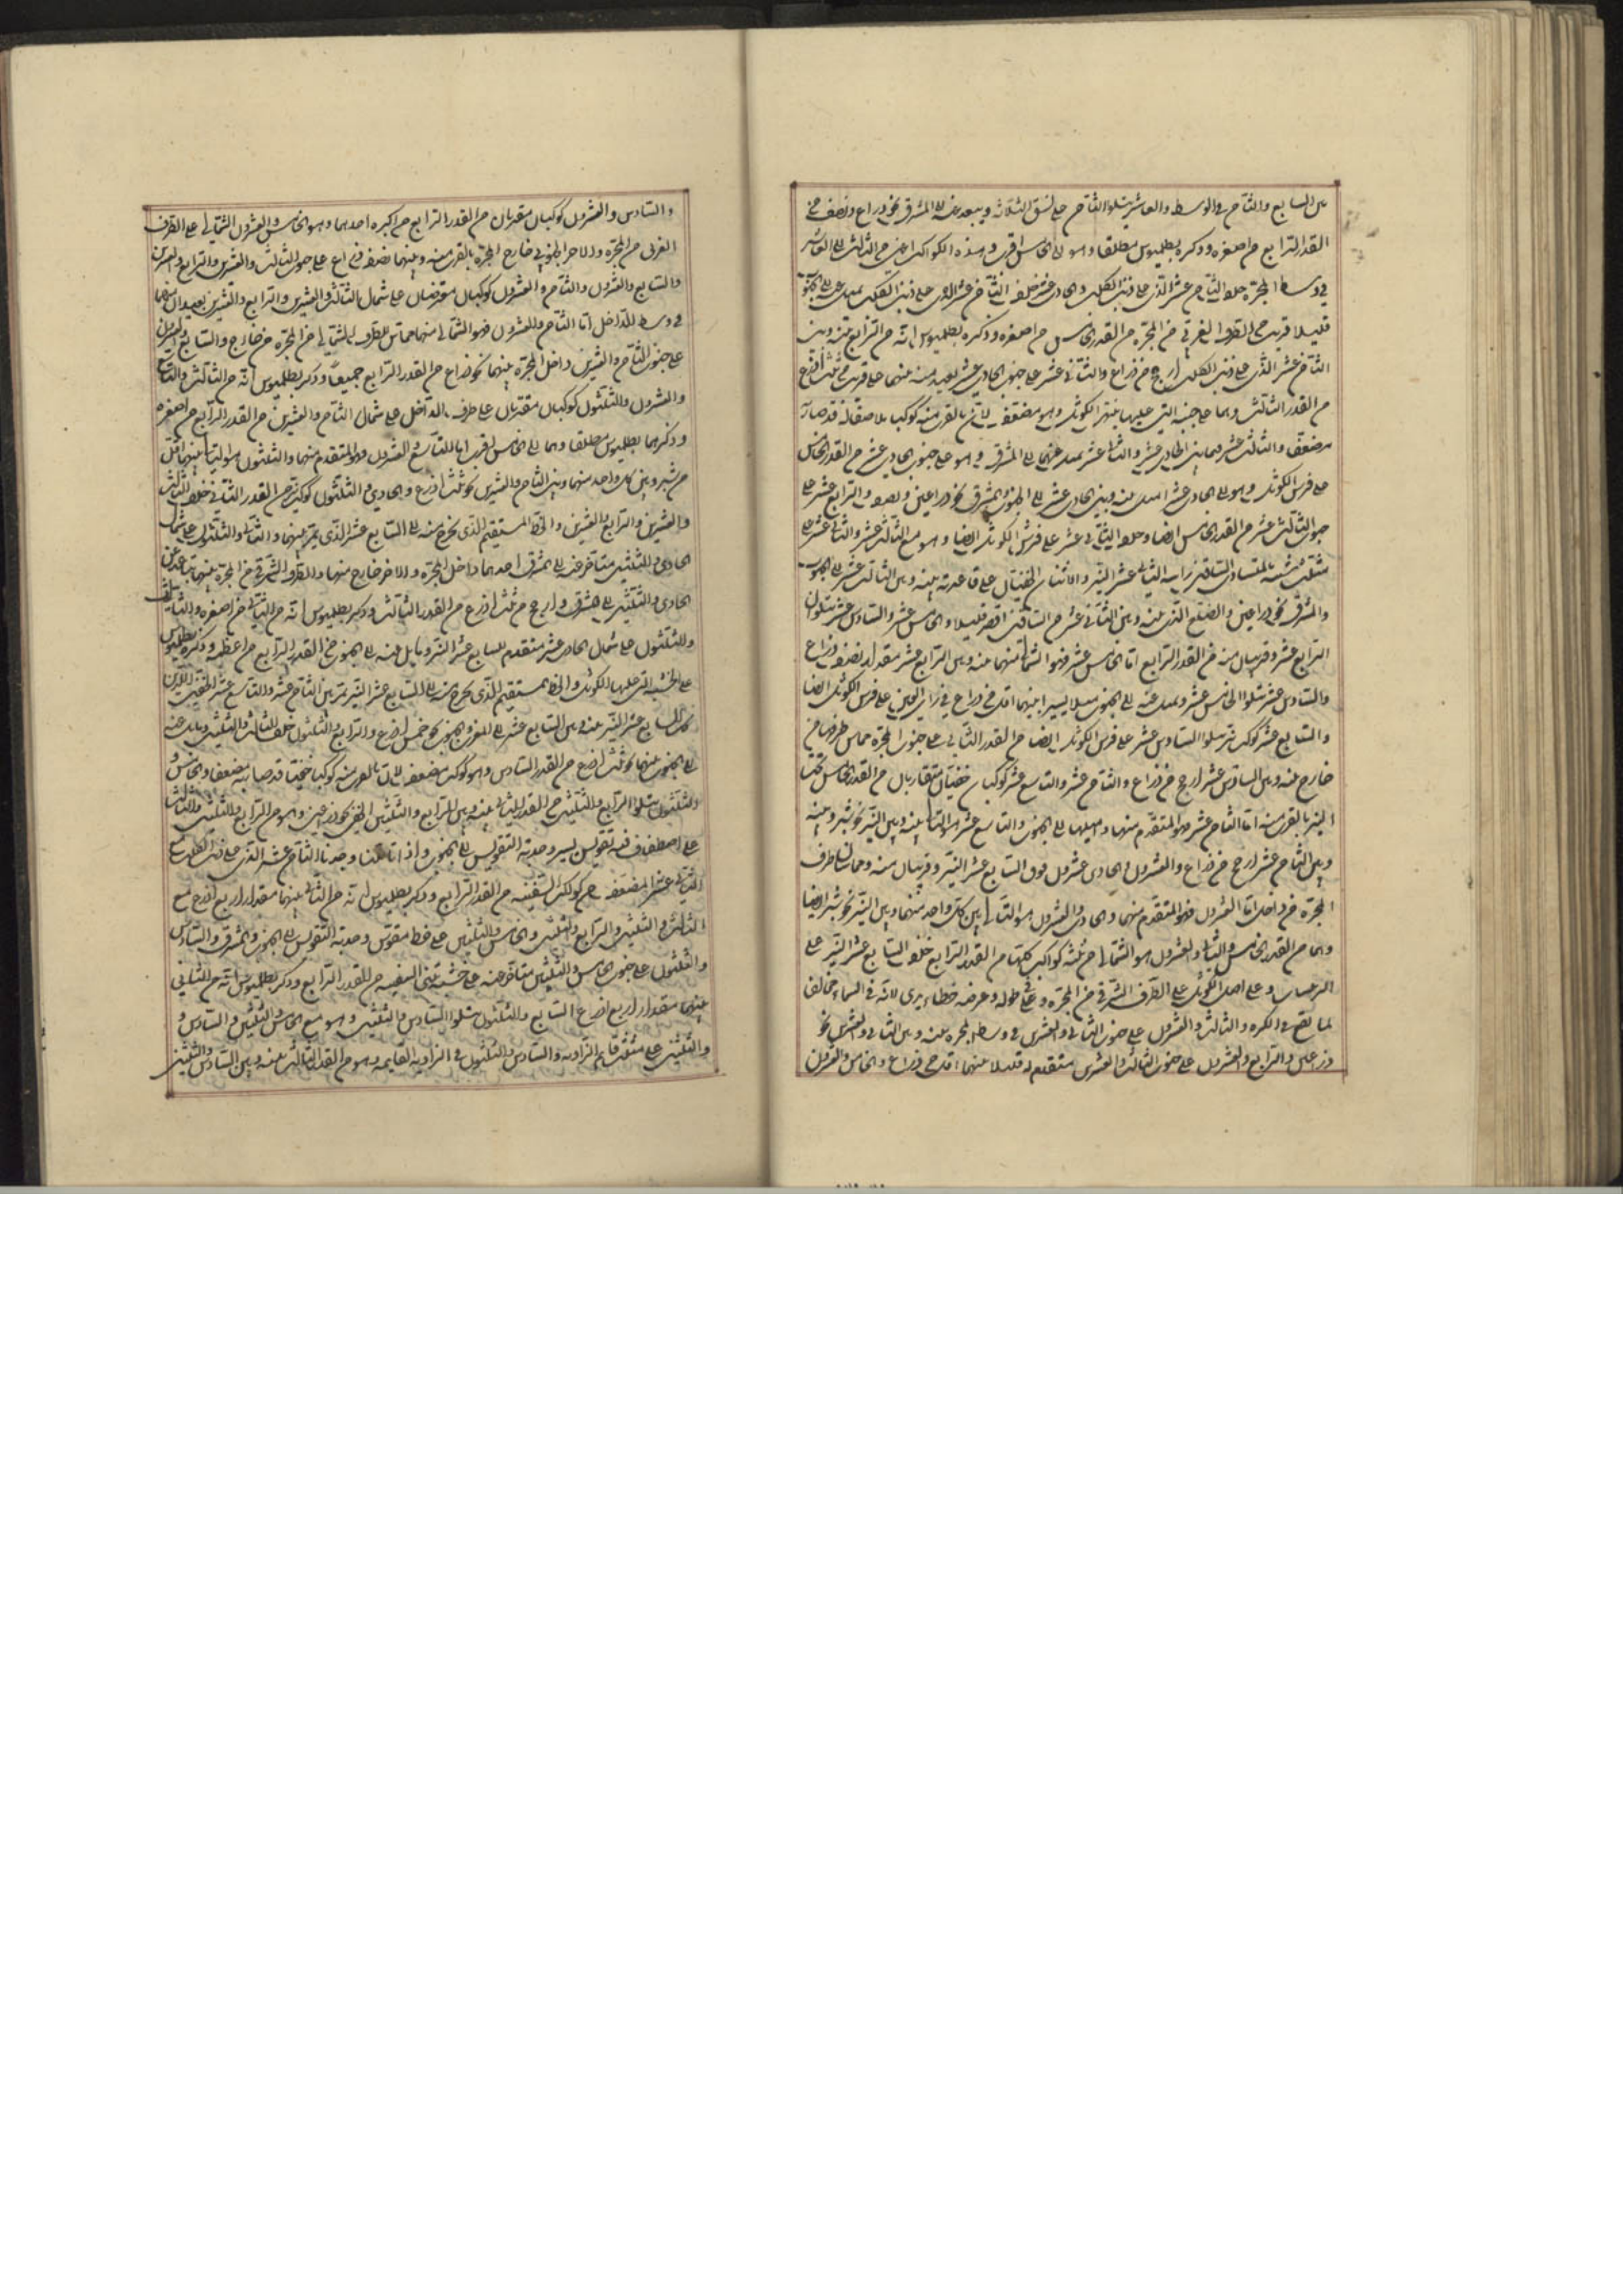 بين السابع والثامن في الوسط والعاشر يتلو الثامن على نسق الثلاثة ويبعد عنه الى المشرق نحو ذراع ونصف من
القدر الرابع من اصغره وذكره بطلميوس مطلقا وهو الى الخامس اقرب وهذه الكواكب اعني من الثالث الى العاشر
في وسط المجرة خلف الثامن عشر الذي على ذنب الكلب والحادي عشر خلف الثامن عشر الذي على ذنب الكلب يبعد عنه الى الجنوب
قليلا قريب من الطرف الغربي من المجرة من القدر الخامس من اصغره وذكره بطلميوس انه من الرابع بينه وبين
الثامن عشر الذي على ذنب الكلب ارجح من ذراع والثاني عشر على جنوب الحادي عشر بعيد منه منهما على قريب من ثلث اذرع
من القدر الثالث وهما على خشبة التي عليها بنهر الكوثل وهو مضعف لان بالقرب منه كوكب ملاصقا له قد صار به
مضعفا والثالث عشر فيما بين الحادي عشر والثاني عشر يبعد عنهما الى المشرق وهو على جنوب الحادي عشر من القدر الخامس
على فرش الكوثل وهو الى الحادي عشر اميل منه وبين الحادي عشر الى الجنوب والمشرق نحو ذراعين ونصف والرابع عشر على
جنوب الثالث عشر من القدر الخامس ايضا وخلف الثاني عشر على فرش الكوثل ايضا وهو مع الثالث عشر والثاني عشر على
مثلث شبيه بالمتساوي الساقين راسه الثاني عشر النير والاثنان الخفيان على قاعدته بينه وبين الثالث عشر الى الجنوب
والمشرق نحو ذراعين والضلع الذي بينه وبين الثاني عشر من الساقين اقصر قليلا والخامس عشر والسادس عشر يتلوان
الرابع عشر وقريبان منه من القدر الرابع اما الخامس عشر فهو الشمالي منهما بينه وبين الرابع عشر مقدار نصف ذراع
والسادس عشر يتلو الخامس عشر ويبعد عنه الى الجنوب ميلا يسيرا بينهما اقل من ذراع في راي العين على فرش الكوثل ايضا
والسابع عشر كوكب نير يتلو السادس عشر على فرش الكوثل ايضا من القدر الثاني على جنوب المجرة مماس طرفها من
خارج بينه وبين السادس عشر ارجح من ذراع والثامن عشر والتاسع عشر كوكبان خفيان متقاربان من القدر الخامس تحت
النير بالقرب منه اما الثامن عشر فهو المتقدم منهما واميلهما الى الجنوب والتاسع عشر هو التالي بينه وبين النير نحو شبر وبينه
وبين الثامن عشر ارجح من ذراع والعشرون والحادي عشرون فوق السابع عشر النير وقريبان منه ومماسان طرف
المجرة من داخل اما العشرون فهو المتقدم منهما والحادي والعشرون هو التالي بين كل واحد منهما وبين النير نحو شبر ايضا
وهما من القدر الخامس والثاني والعشرون هو الشمالي من ثلثة كواكب كلها من القدر الرابع خلف السابع عشر النير على
الترسات وعلى اصل الكوثل على الطرف الشرقي من المجرة وفي طوله وعرضه خطاء يرى لانه في السماء مخالف
لما يقع في الكره والثالث والعشرون على جنوب الثاني والعشرين في وسط المجرة بينه وبين الثاني والعشرين نحو
ذراعين والرابع والعشرون على جنوب الثالث والعشرين متقدم له قليلا بينهما اقل من ذراع والخامس والعشرون
والسادس والعشرون كوكبان مقتربان من القدر الرابع من اكبره احدهما وهو الخامس والعشرون الشمالي على الطرف
الغربي من المجرة والاخر الجنوبي خارج المجرة بالقرب منه وبينهما نصف ذراع على جنوب الثالث والعشرين والرابع والعشرين
والسابع والعشرون والثامن والعشرون كوكبان مقترنان على شمال الثالث والعشرين والرابع والعشرين بعيدان منهما
في وسط الداخل اما الثامن والعشرون فهو الشمالي منهما مماس للطرف الشمالي من المجرة من خارج والسابع والعشرون
على جنوب الثامن والعشرين داخل المجرة بينهما نحو ذراع من القدر الرابع جميعا وذكر بطلميوس انه من الثالث والتاسع
والعشرون والثلثون كوكبان مقتربان على طرف الداخل على شمال الثامن والعشرين من القدر الرابع من اصغره
وذكرهما بطلميوس مطلقا وهما الى الخامس اقرب اما التاسع والعشرون فهو المتقدم منهما والثلثون هو التالي بينهما اقل
من شبر وبين كل واحد منهما وبين الثامن والعشرين نحو ثلث اذرع والحادي والثلثون كوكب نير من القدر الثاني خلف الثالث
والعشرين والرابع والعشرين والخط المستقيم الذي يخرج منه الى السابع عشر الذي يمر بينهما والثاني والثلثون على شمال
الحادي والثلثين متأخر عنه الى المشرق احدهما داخل المجرة والاخر خارج منها والطرف الشرقي من المجرة بينهما يتباعد عن
الحادي والثلثين الى المشرق ارجح من ثلث اذرع من القدر الثالث وذكر بطلميوس انه من الثاني من اصغره والثالث
والثلثون على شمال الخامس عشر متقدم للسابع عشر النير ومايل عنه الى الجنوب من القدر الرابع من اعظمه وذكره بطلميوس
على الخشبة التي عليها الكوثل والخط المستقيم الذي يخرج منه الى السابع عشر النير يمر بين الثامن عشر والتاسع عشر الخفيين اللذين
تحت السابع عشر النير بينه وبين السابع عشر الى المغرب والجنوب نحو خمس اذرع والرابع والثلثون خلف الثالث والثلثين ويبعد عنه
الى الجنوب بينهما نحو ثلث اذرع من القدر السادس وهو كوكب مضعف لان بالقرب منه كوكبا خفيا قد صار به مضعفا والخامس و
والثلثون يتلو الرابع والثلثين من القدر الثاني بينه وبين الرابع والثلثين الخفي نحو ذراعين وهو من الرابع والثلثين والثالث
على اصطفاف فيه تقويس يسير وحدبة التقويس الى الجنوب واذا تاملنا وجدنا الثامن عشر الذي على ذنب الكلب مع
الثاني عشر المضعف من كواكب السفينه من القدر الرابع وذكر بطلميوس انه من الثاني بينهما مقدار اربع اذرع مع
الثالث والثلثين والرابع والثلثين والخامس والثلثين على خط مقوس وحدبة التقويس الى الجنوب والمشرق والسادس
والثلثون على جنوب الخامس والثلثين متاخر عنه على خشبة من السفينه من القدر الرابع وذكر بطلميوس انه من الثاني
بينهما مقدار اربع اذرع السابع والثلثون يتلو السادس والثلثين وهو مع الخامس والثلثين والسادس و
والثلثين على مثلث قايم الزاويه والسادس والثلثون في الزاويه القايمه وهو من القدر الثالث بينه وبين السادس والثلثين